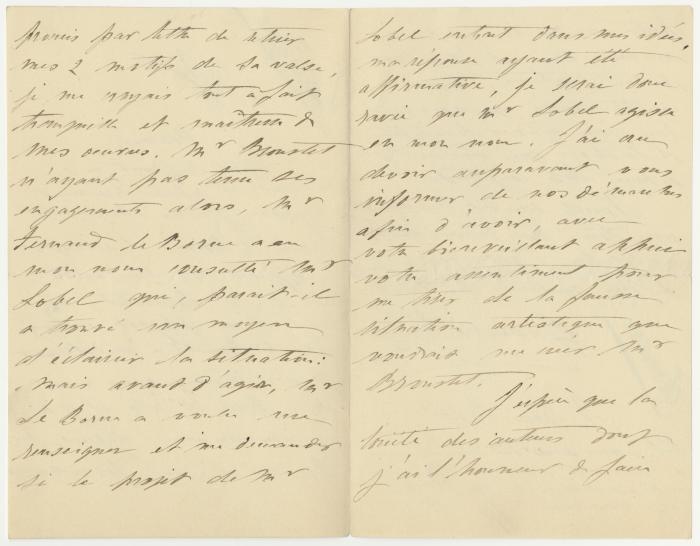 promis par lettre de retirer
mes 2 motifs de sa valse,
je me croyais tout à fait
tranquille et maîtresse de
mes oeuvres. Mr Broustet
n'ayant pas tenu ses
engagements alors, Mr
Fernand Le Borne a en
mon nom consulté Mr
Lobel qui, paraît-il
a trouvé un moyen
d'éclaircir la situation:
Mais avant d'agir, Mr
Le Borne a voulu me
renseigner et me demander
si le projet de Mr
Lobel entrait dans mes idées,
ma réponse ayant été
affirmative, je serai donc
ravie que Mr Lobel agisse
en mon nom. J'ai cru
devoir auparavant vous
informer de nos démarches
afin d'avoir, avec
votre bienveillant appui
votre assentiment pour
me tirer de la fausse
situation artistique que
voudrait me créer Mr
Broustet.
J'espère que la
Société des auteurs dont
j'ai l'honneur de faire